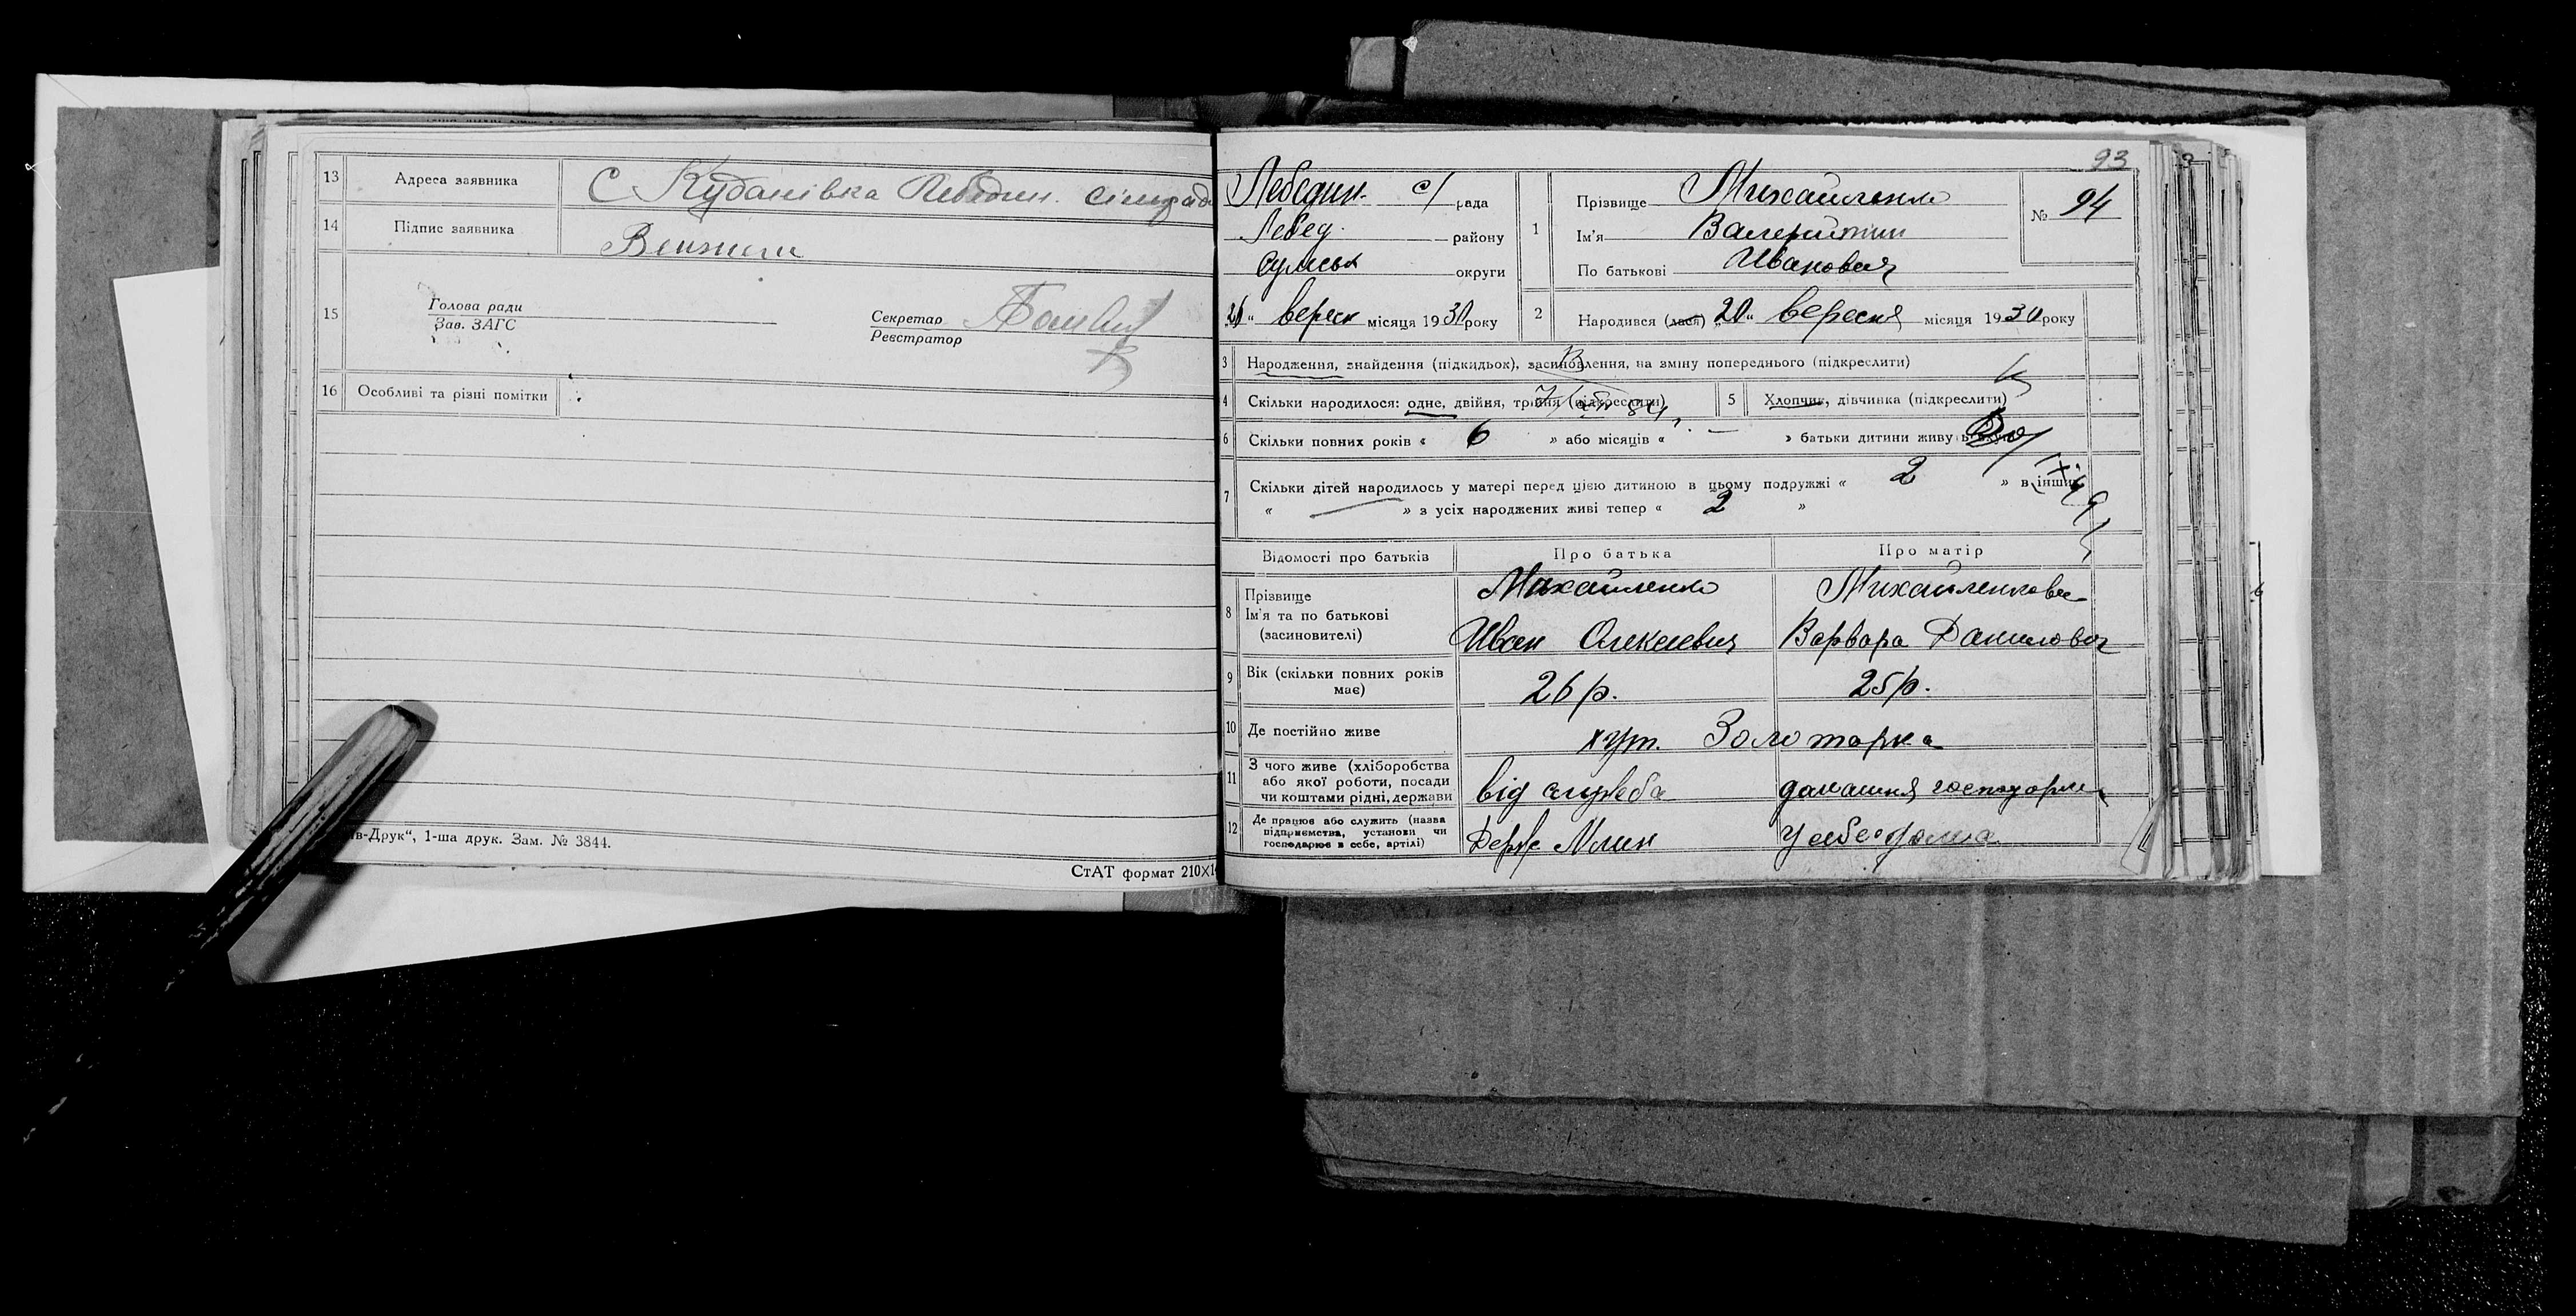 13 Адреса заявника С Кубанівка Лебедин. сільрад
14 Підпис заявника
15 Голова ради
Зав. ЗАГС
Секретар
Реєстратор
16 Особливі та різні помітки
в-Друк“, 1-ша друк. Зам. № 3844.
СтАТ формат 210×1
93
Лебедин. с/ рада
Лебед. району
Сумськ округи
вересн місяця 1930 року
1 Прізвище Михайленко
Ім'я Валентин
По батькові Иванович
№ 94
2 Народився (лася) „20“ вересня місяця 1930 року
3 Народження, знайдення (підкидьок), засиновлення, на зміну попереднього (підкреслити)
4 Скільки народилося: одне, двійня, трійня (підкреслити)
5 Хлопчик, дівчинка (підкреслити)
6 Скільки повних років « 6 » або місяців « — » батьки дитини живуть
7 Скільки дітей народилось у матері перед цією дитиною в цьому подружжі « 2 » в інших
« — » з усіх народжених живі тепер « 2 »
Відомості про батьків Про батька Про матір
8 Прізвище
Ім'я та по батькові
(засиновителі)
Михайленко
Иван Олексиевич
Михайленкова
Варвара Данилович
9 Вік (скільки повних років
має)
26 р. 25 р.
10 Де постійно живе хут. Золотарка
11 З чого живе (хліборобства
або якої роботи, посади
чи коштами рідні, держави
від служба домашня господарка
12 Де працює або служить (назва
підприємства, установи чи
господарює в себе, артілі)
Держ Млин у себе дома